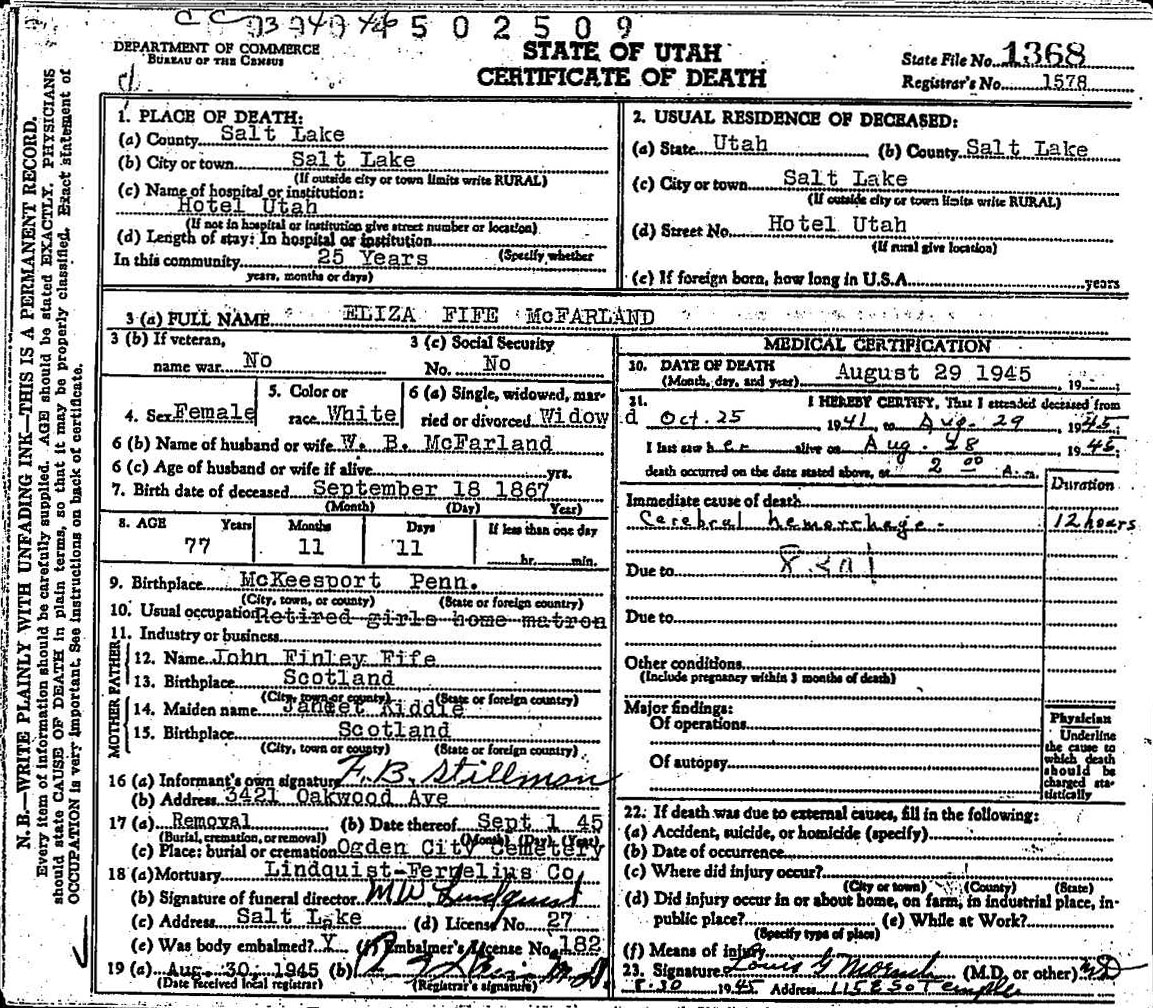 502509
DEPARTMENT OF COMMERCE
BUREAU OF THE CENSUS
STATE OF UTAH
CERTIFICATE OF DEATH
State File No. 1368
Registrar's No. 1578
N. B.—WRITE PLAINLY WITH UNFADING INK—THIS IS A PERMANENT RECORD.
Every item of information should be carefully supplied. AGE should be stated EXACTLY. PHYSICIANS
should state CAUSE OF DEATH in plain terms, so that it may be properly classified. Exact statement of
OCCUPATION is very important. See instructions on back of certificate.
1. PLACE OF DEATH:
(a) County Salt Lake
(b) City or town Salt Lake
(If outside city or town limits write RURAL)
(c) Name of hospital or institution:
Hotel Utah
(If not in hospital or institution give street number or location)
(d) Length of stay: In hospital or institution
In this community 25 Years (Specify whether
years, months or days)
2. USUAL RESIDENCE OF DECEASED:
(a) State Utah (b) County Salt Lake
(c) City or town Salt Lake
(If outside city or town limits write RURAL)
(d) Street No. Hotel Utah
(If rural give location)
(e) If foreign born, how long in U.S.A. years
3 (a) FULL NAME ELIZA FIFE McFARLAND
3 (b) If veteran,
name war No
3 (c) Social Security
No. No
4. Sex Female
5. Color or
race White
6 (a) Single, widowed, mar-
ried or divorced Widow
6 (b) Name of husband or wife W. B. McFarland
6 (c) Age of husband or wife if alive yrs.
7. Birth date of deceased September 18 1867
(Month) (Day) Year)
8. AGE Years Months Days If less than one day
77 11 11 hr. min.
9. Birthplace McKeesport Penn.
(City, town, or county) (State or foreign country)
10. Usual occupation Retired girls home matron
11. Industry or business
FATHER
12. Name John Finley Fife
13. Birthplace Scotland
(City, town or county) (State or foreign country)
MOTHER
14. Maiden name Janeet Riddle
15. Birthplace Scotland
(City, town or county) (State or foreign country)
16 (a) Informant's own signature F. B. Stillman
(b) Address 3421 Oakwood Ave
17 (a) Removal (b) Date thereof Sept 1 45
(Burial, cremation, or removal) (Month) (Day) (Year)
(c) Place: burial or cremation Ogden City Cemetery
18 (a) Mortuary Lindquist-Fernelius Co
(b) Signature of funeral director M W Lindquist
(c) Address Salt Lake (d) License No. 27
(e) Was body embalmed? X (f) Embalmer's License No. 182
19 (a) Aug. 30, 1945 (b)
(Date received local registrar) (Registrar's signature)
MEDICAL CERTIFICATION
30. DATE OF DEATH August 29 1945, 19
(Month, day, and year)
31. I HEREBY CERTIFY, That I attended deceased from
d Oct. 25 1941, to Aug. 29 1945
I last saw her alive on Aug. 28 1945
death occurred on the date stated above, at 2 00 A. m.
Duration
Immediate cause of death
Cerebral hemorrhage - 12 hours
Due to
Due to
Other conditions
(Include pregnancy within 3 months of death)
Major findings:
Of operations
Of autopsy
Physician
Underline
the cause to
which death
should be
charged sta-
tistically
22. If death was due to external causes, fill in the following:
(a) Accident, suicide, or homicide (specify)
(b) Date of occurrence
(c) Where did injury occur?
(City or town) (County) (State)
(d) Did injury occur in or about home, on farm, in industrial place, in-
public place? (e) While at Work?
(Specify type of place)
(f) Means of injury
23. Signature Louis G Moench (M.D. or other) MD
8-30 1945 Address 115 E So Temple